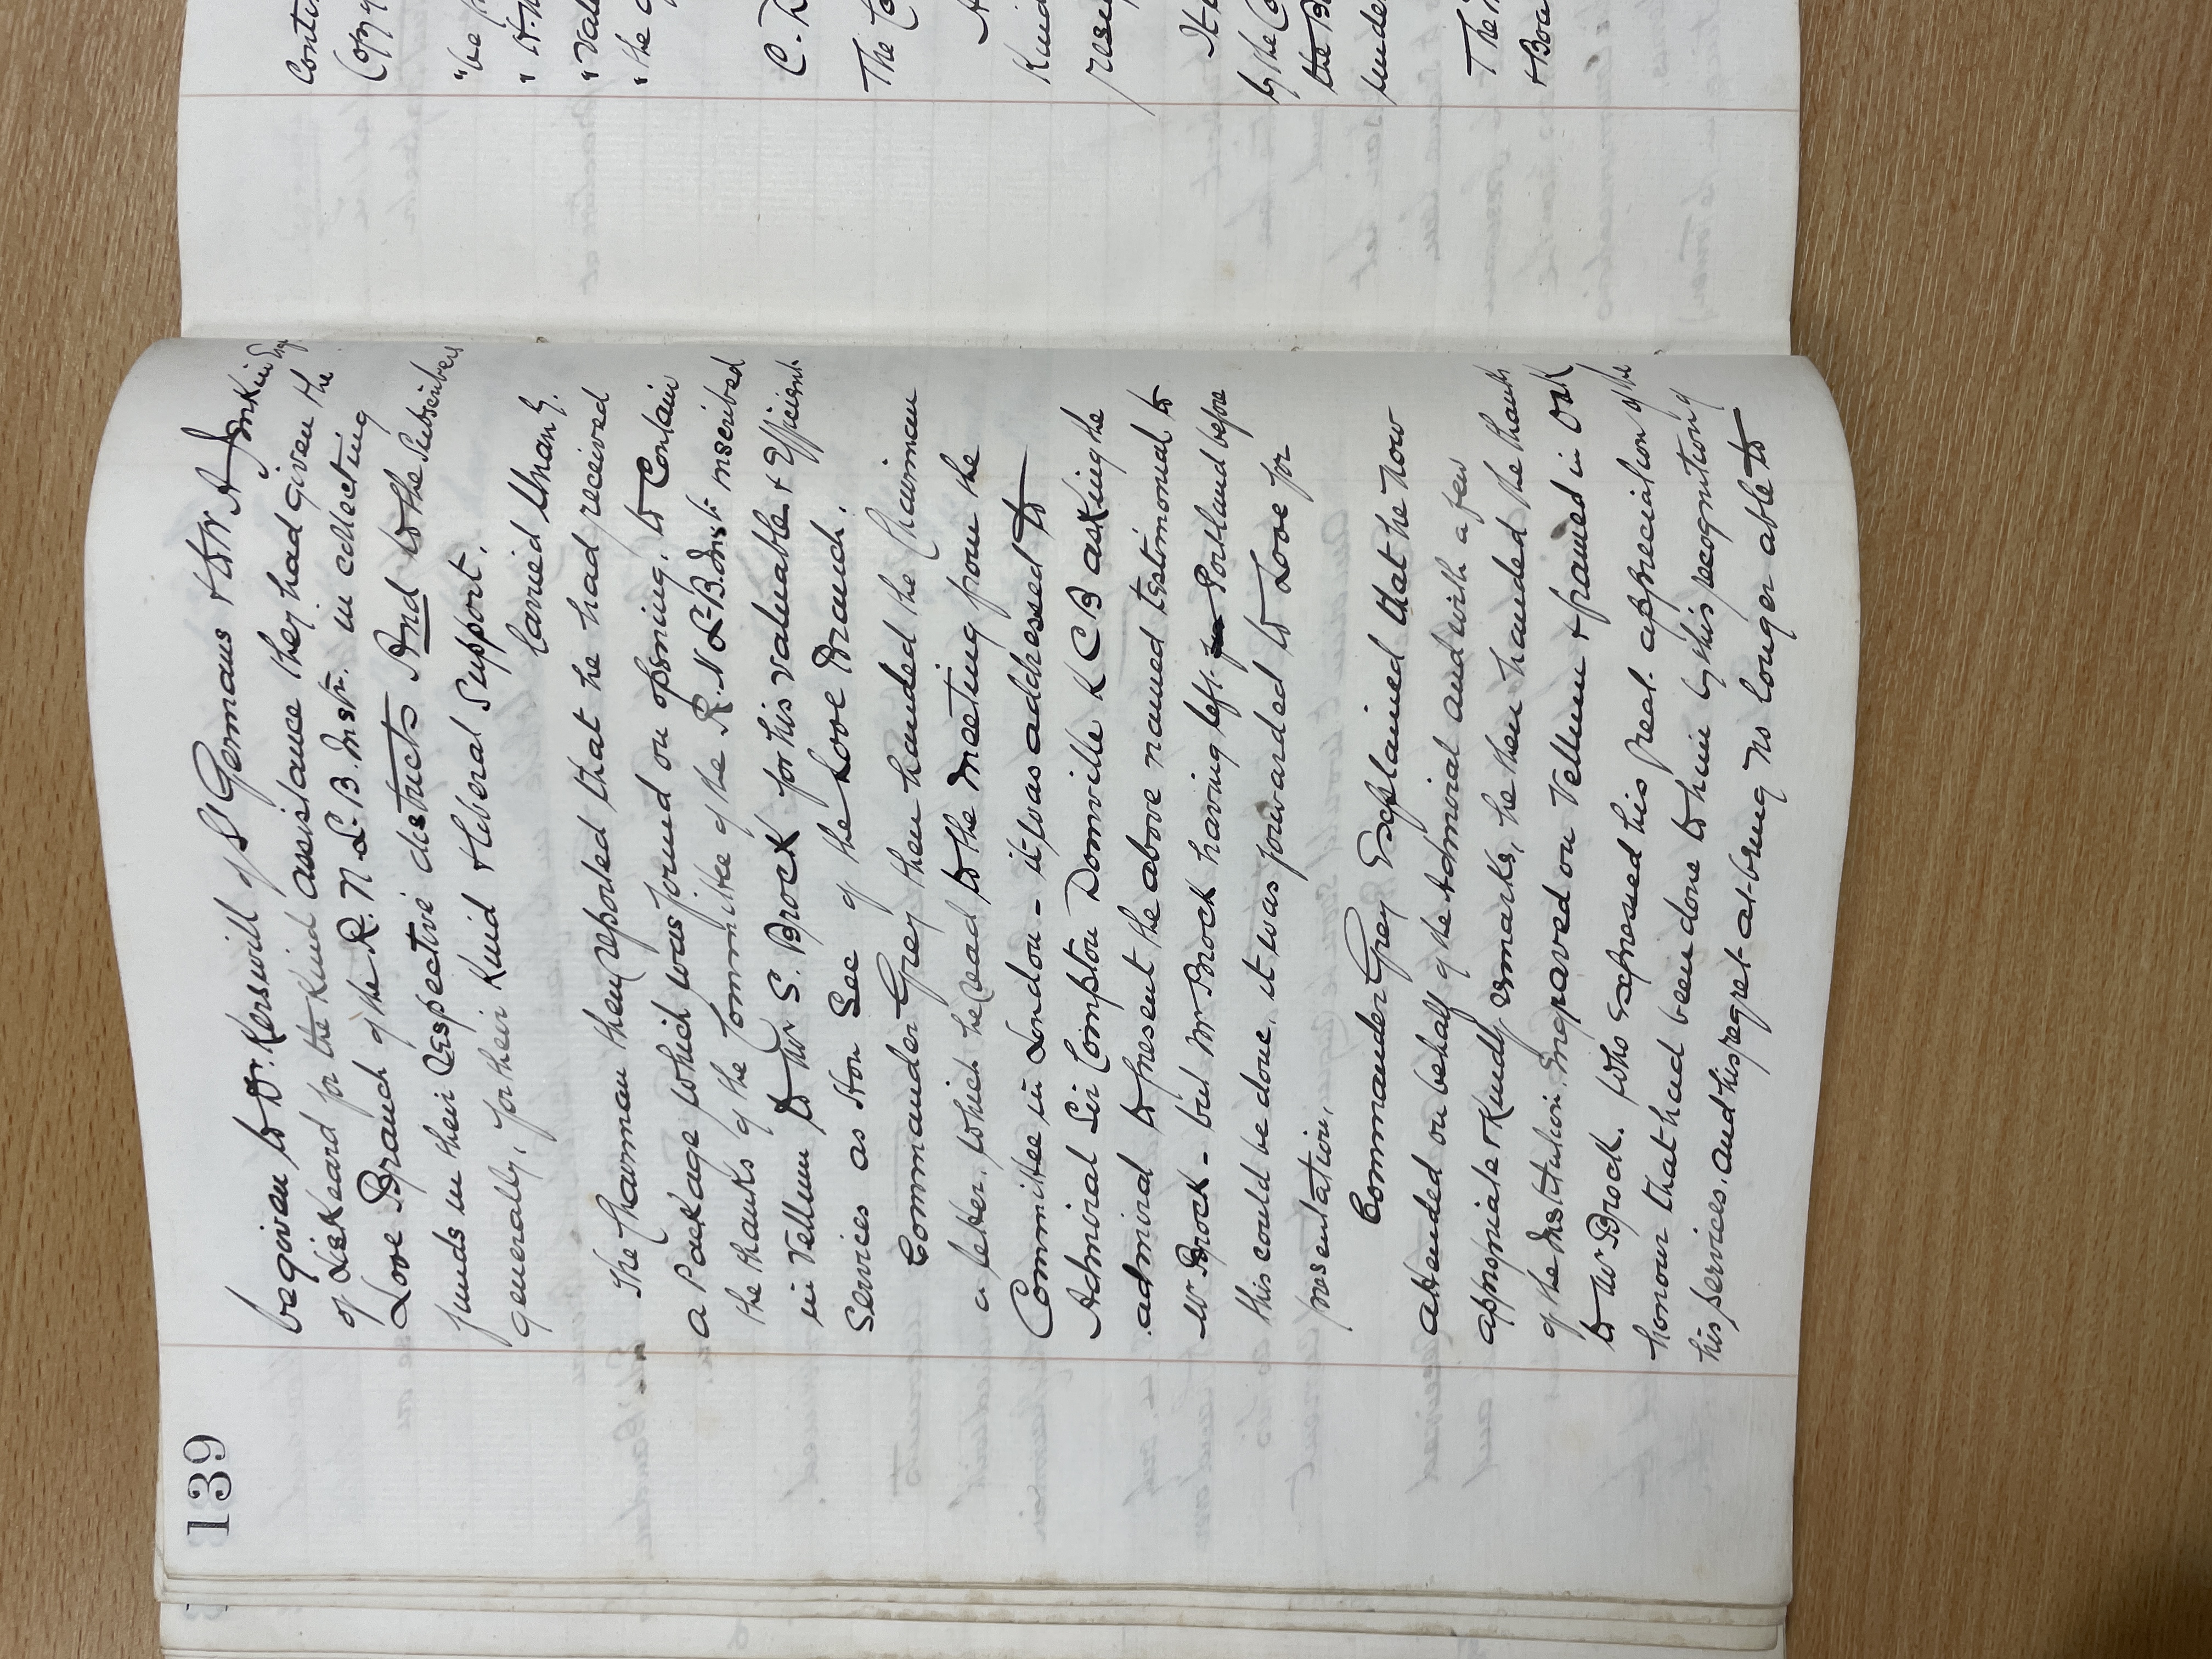 139
be given to Dr. Kerswill of St Germans & to Mr A Jenkin Esq
of Liskeard for the Kind assistance they had given the
Looe Branch of the R. N. L. B. Instn. in collecting
funds in their respective districts And to the Subscribers
generally, for their Kind & liberal Support.
Carried Unany.
The Chairman then reported that he had received
a Package which was found on opening, to Contain
the thanks of the Committee of the R. N. L. B. Inst. inscribed
in Vellum to Mr S. Brock for his valuable & Efficient
Services as Hon Sec of the Looe Branch.
Commander Grey then handed the Chairman
a letter, which he read to the meeting from the
Committee in London - it was addressed to
Admiral Sir Compton Domville KCB asking the
admiral to present the above named testimonial to
Mr Brock - but Mr Brock having left Portland before
this could be done, it was forwarded to Looe for
presentation.
Commander Grey Explained that he now
attended on behalf of the Admiral and with a few
appropriate & Kindly remarks, he then handed the thanks
of the Institution, Engraved on Vellum & framed in Oak
to Mr Brock. Who expressed his great appreciation of the
honour that had been done to him by this recognition of
his services, and his regret at being no longer able to
Conte
Copy
"be
"
"Val
"the
C.
The Co
Kind
prese
It
by the Co
the B
unde
The
& Boa